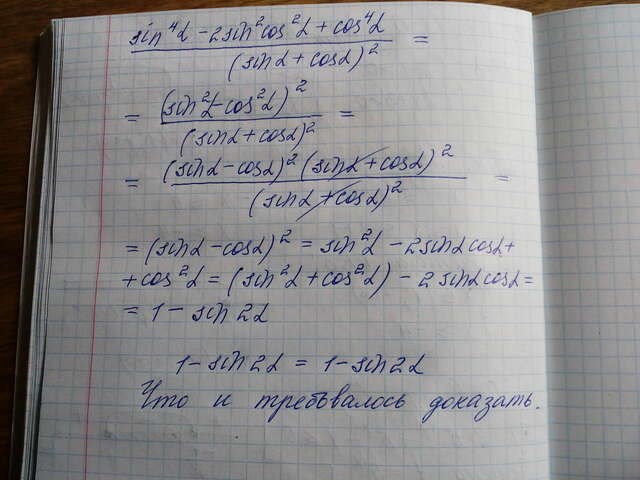 sin⁴α - 2sin²cos²α + cos⁴α
(sinα + cosα)² =
= (sin²α - cos²α)²
(sinα + cosα)² =
= (sinα - cosα)² (sinα + cosα)²
(sinα + cosα)² =
= (sinα - cosα)² = sin²α - 2sinαcosα +
+ cos²α = (sin²α + cos²α) - 2sinαcosα =
= 1 - sin2α
1 - sin2α = 1 - sin2α
Что и требовалось доказать.